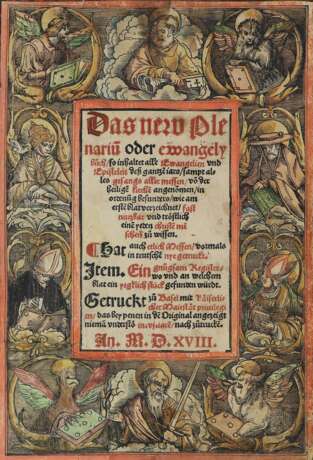 Das new Ple
nariū oder ewangely
büch / so inhaltet alle Ewangelien vnd
Epistelen deß gantzē iars / sampt al
les gesangs aller messen / vō der
heilige kirchē angenomen / in
ordenūg besunders / wie am
erstē blat verzeichnet / fast
nutzbar vnd tröstlich
einē yeden christē mē
schen zů wissen.
Hat auch etlich Messen / vormals
in teutsch nye getruckt.
Item. Ein gnůgsam Register /
wo vnd an welchem
blat ein yegklich stück gefunden würdt.
Getruckt zů Basel mit Käiserli
cher Maiestät priuilegi
en / das bey penen in dē Original angezeigt
niemā vnderstō nach zůtruckē.
An. M. D. XVIII.